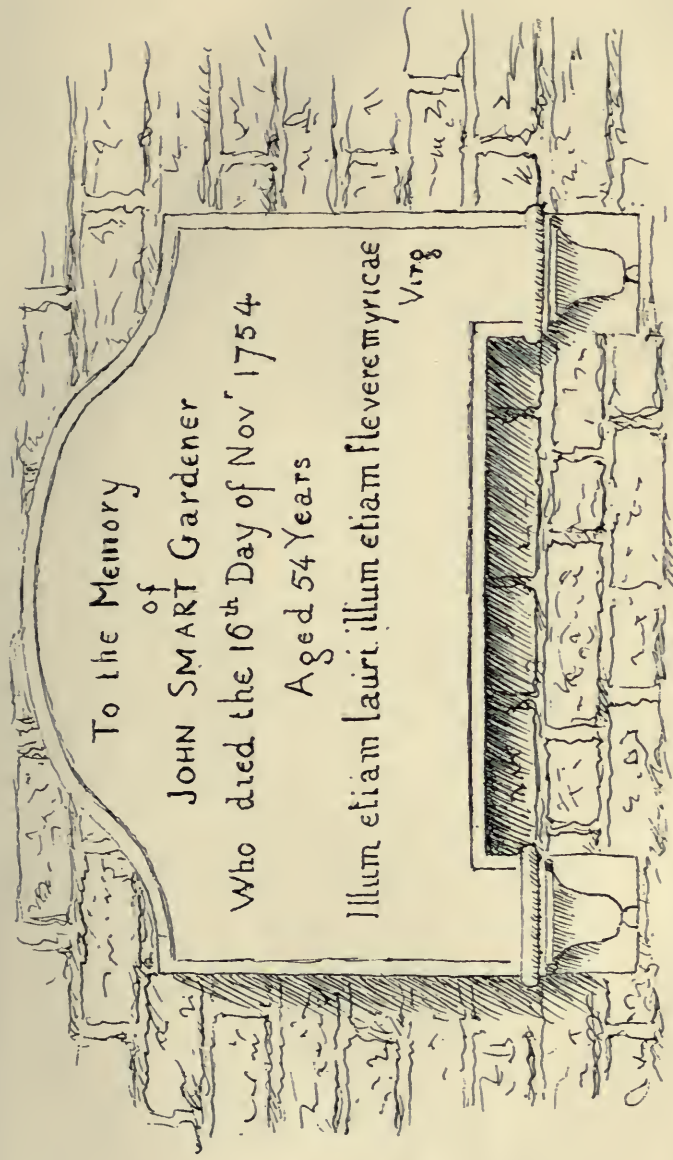 To the Memory
of
JOHN SMART Gardener
Who died the 16th Day of Novr 1754
Aged 54 Years
Illum etiam lauri. illum etiam flevere myricae
Virg